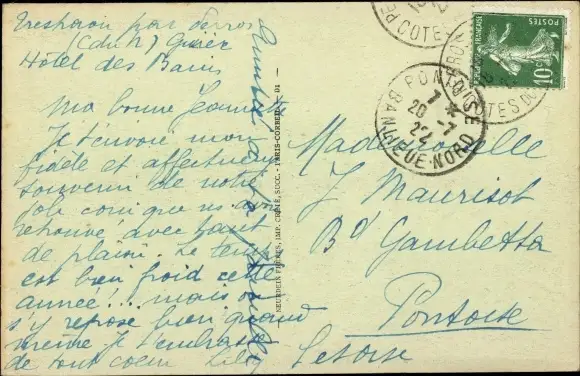 par Perros
(C du N)
Hôtel des Bains
Ma bonne Jeannette
Je t'envoie mon
fidèle et affectueux
souvenir de notre
joli coin que nous avons
retrouvé avec tant
de plaisir. Le temps
est bien froid cette
année... mais on
s'y repose bien quand
même je t'embrasse
de tout coeur Lily
Amitiés à ta famille
NEURDEIN FRÈRES, IMP. CRÉTÉ, SUCC. - PARIS-CORBEIL - D1 -
COTES DU
PONTOISE
7 *
20 -7
22
BANLIEUE-NORD
POSTES
REPUBLIQUE FRANÇAISE
10c
Mademoiselle
J Maurisot
Bd Gambetta
Pontoise